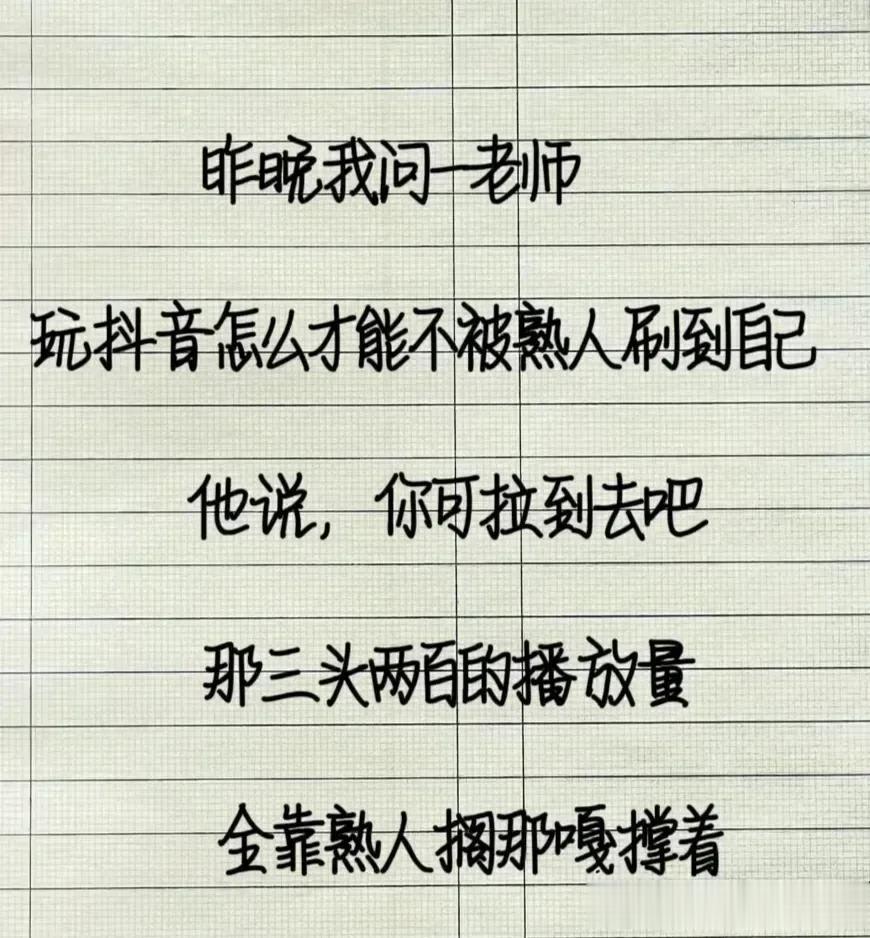 昨晚我问一老师
玩抖音怎么才能不被熟人刷到自己
他说，你可拉到去吧
那三头两百的播放量
全靠熟人搁那嘎撑着